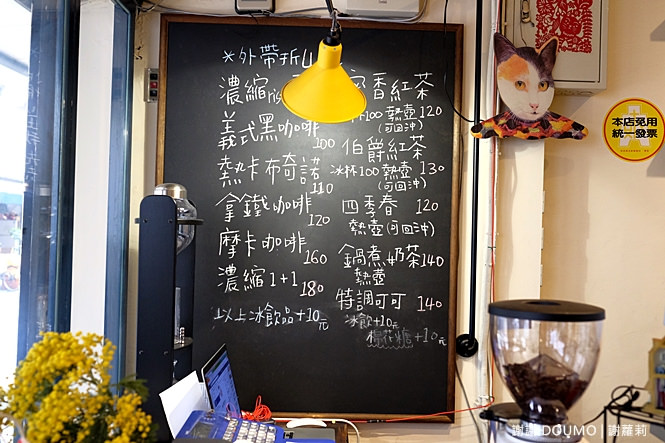 *外帶折
濃縮ris
義式黑咖啡
100
熱卡布奇諾
110
拿鐵咖啡
120
摩卡咖啡
160
濃縮1+1 180
以上冰飲品+10元
香紅茶
100 熱壺120
(可回沖)
伯爵紅茶
冰杯100 熱壺130
(可回沖)
四季春 120
熱壺(可回沖)
鍋煮奶茶140
熱壺
特調可可 140
冰飲+10元
棉花糖+10元
本店免用
統一發票
DOUMO | 謝蘿莉